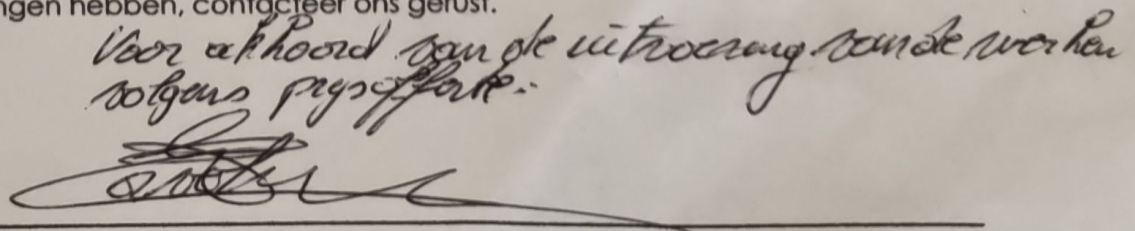 ngen hebben, contacteer ons gerust.
Voor akkoord van de uitvoering van de werken
volgens prijsofferte.